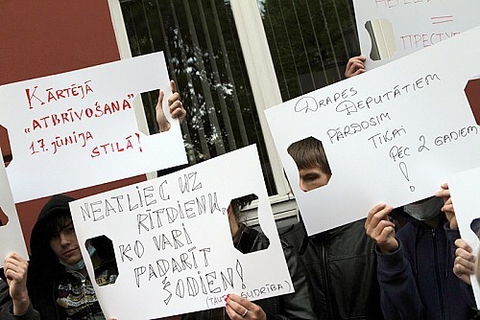 KĀRTĒJĀ
"ATBRĪVOŠANA"
17. JŪNIJA
STILĀ!
NEATLIEC UZ
RĪTDIENU,
KO VARI
PADARĪT
ŠODIEN!
(TAUTAS GUDRĪBA)
DRAPES DEPUTĀTIEM
PĀRDOSIM
TIKAI
PĒC 2 GADIEM
!
=
ПРЕСТУП